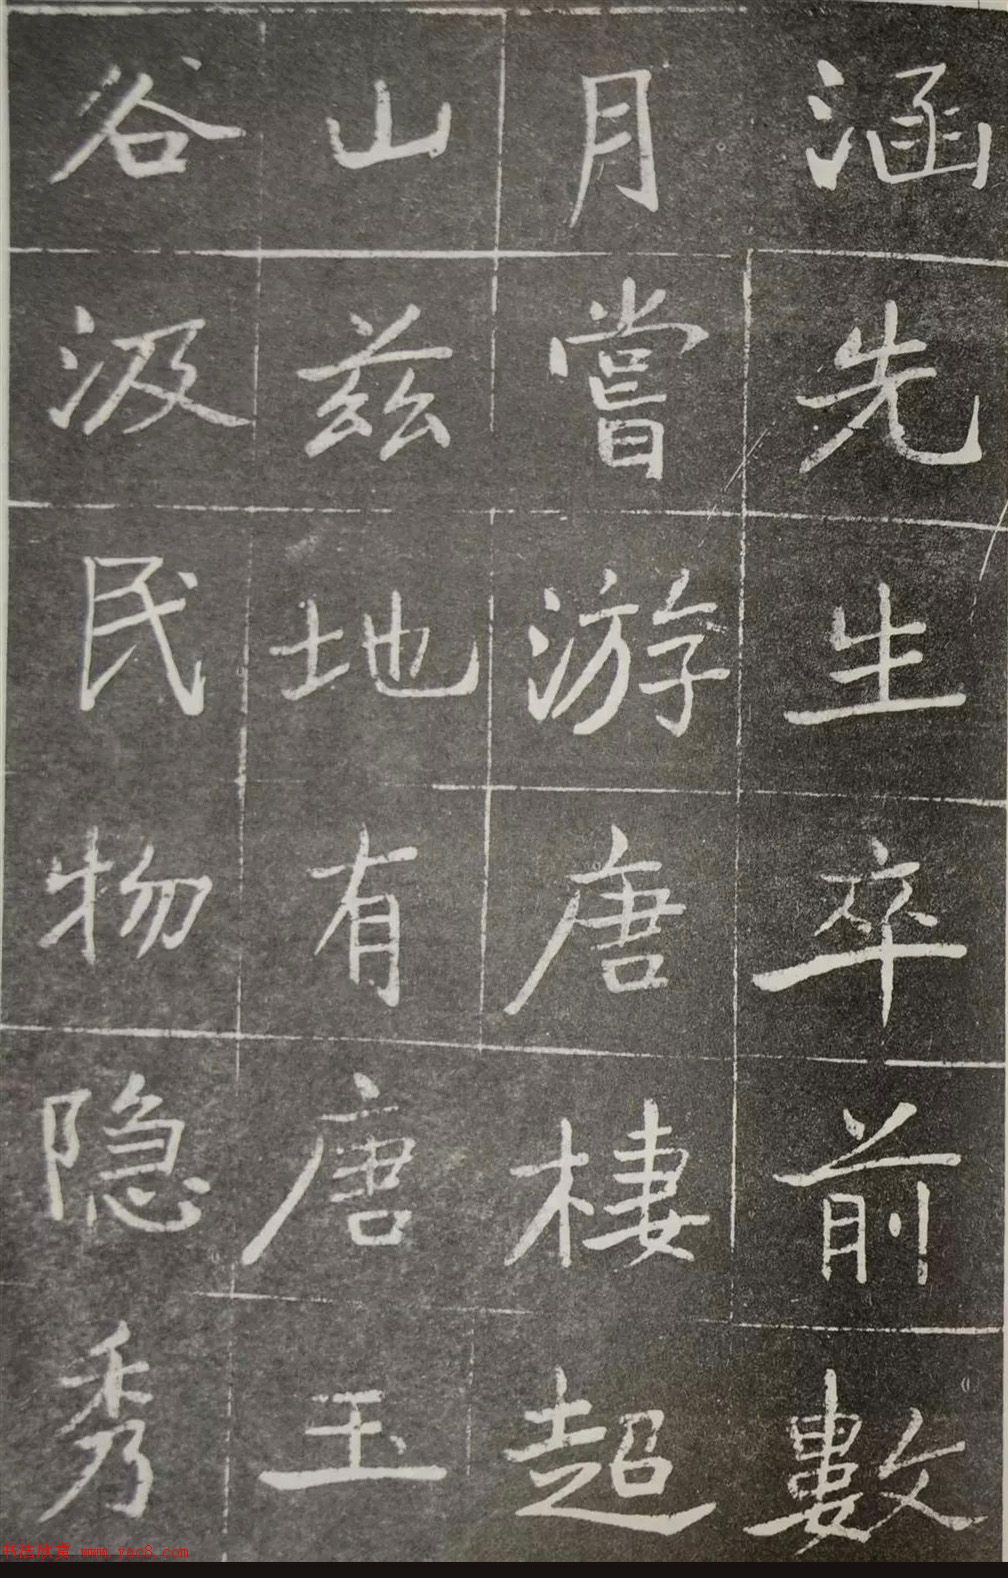 涵先生卒前數
月嘗游唐棲超
山兹地有唐玉
谷汲民物隐秀
书法欣赏 www.yac8.com